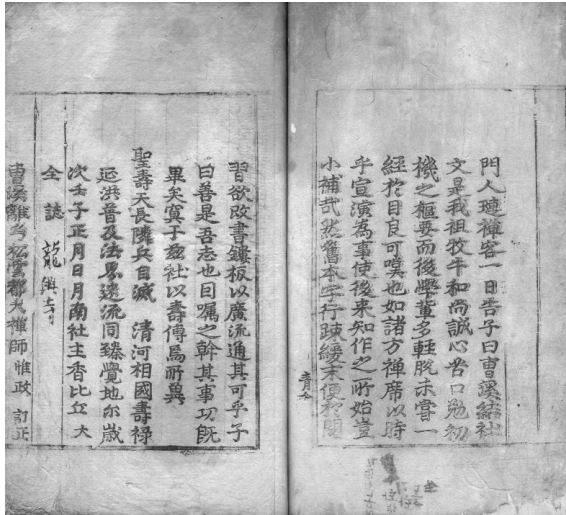 門人璉禪客一日告予曰曹溪結社
文是我祖牧牛和尚誠心苦口勉初
機之樞要而後學輩多輕脫未嘗一
經於目良可嘆也如諸方禪席以時
乎宣演為事使後來知作之所始豈
小補哉然舊本字行疎緩未便於閱
習欲改書鏤板以廣流通其可乎予
曰善是吾志也因囑之幹其事功旣
畢矣寘于茲社以壽傳焉所冀
聖壽天長隣兵自滅 清河相國壽祿
延洪普及法界遠流同臻覺地尒歲
次壬子正月日月南社主香比丘 大
全 誌 龍興寺
曹溪離兮松雲都大禪師惟政 訂正